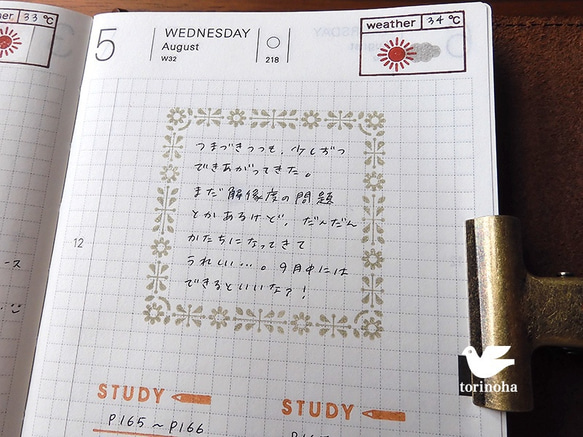 her 33℃
5
WEDNESDAY
August
W32
218
weather 34℃
つまづきつつも、少しずつ
できあがってきた。
まだ解像度の問題
とかあるけど、だんだん
かたちになってきて
うれしい…。9月中には
できるといいなァ!
12
ース
STUDY
P165~P166
STUDY
torinoha